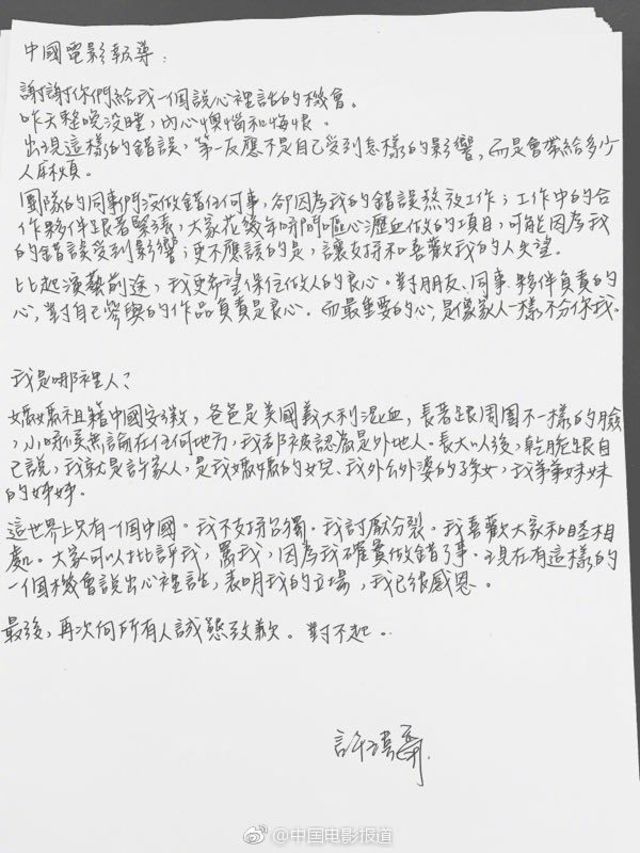 中國電影報導：
謝謝你們給我一個說心裡話的機會。
昨天整晚沒睡，內心懊惱和悔恨。
出現這樣的錯誤，第一反應不是自己受到怎樣的影響，而是會帶給多少
人麻煩。
團隊的同事們沒做錯任何事，卻因為我的錯誤熬夜工作；工作中的合
作夥伴跟著緊張，大家花幾年時間嘔心瀝血做的項目，可能因為我
的錯誤受到影響；更不應該的是，讓支持和喜歡我的人失望。
比起演藝前途，我更希望保住做人的良心。對朋友、同事、夥伴負責的
心，對自己參與的作品負責是良心。而最重要的心，是像家人一樣不分你我。
我是哪裡人？
媽媽祖籍中國安徽，爸爸是美國義大利混血，長著跟周圍不一樣的臉
，小時候無論在任何地方，我都被認為是外地人。長大以後，乾脆跟自
己說，我就是許家人，是我媽媽的女兒、我外公外婆的孫女，我弟弟妹妹
的姊姊。
這世界上只有一個中國。我不支持台獨。我討厭分裂。我喜歡大家和睦相
處。大家可以批評我，罵我，因為我確實做錯了事。現在有這樣的
一個機會說出心裡話，表明我的立場，我已很感恩。
最後，再次向所有人誠懇致歉。對不起。
許瑋甯
@中国电影报道